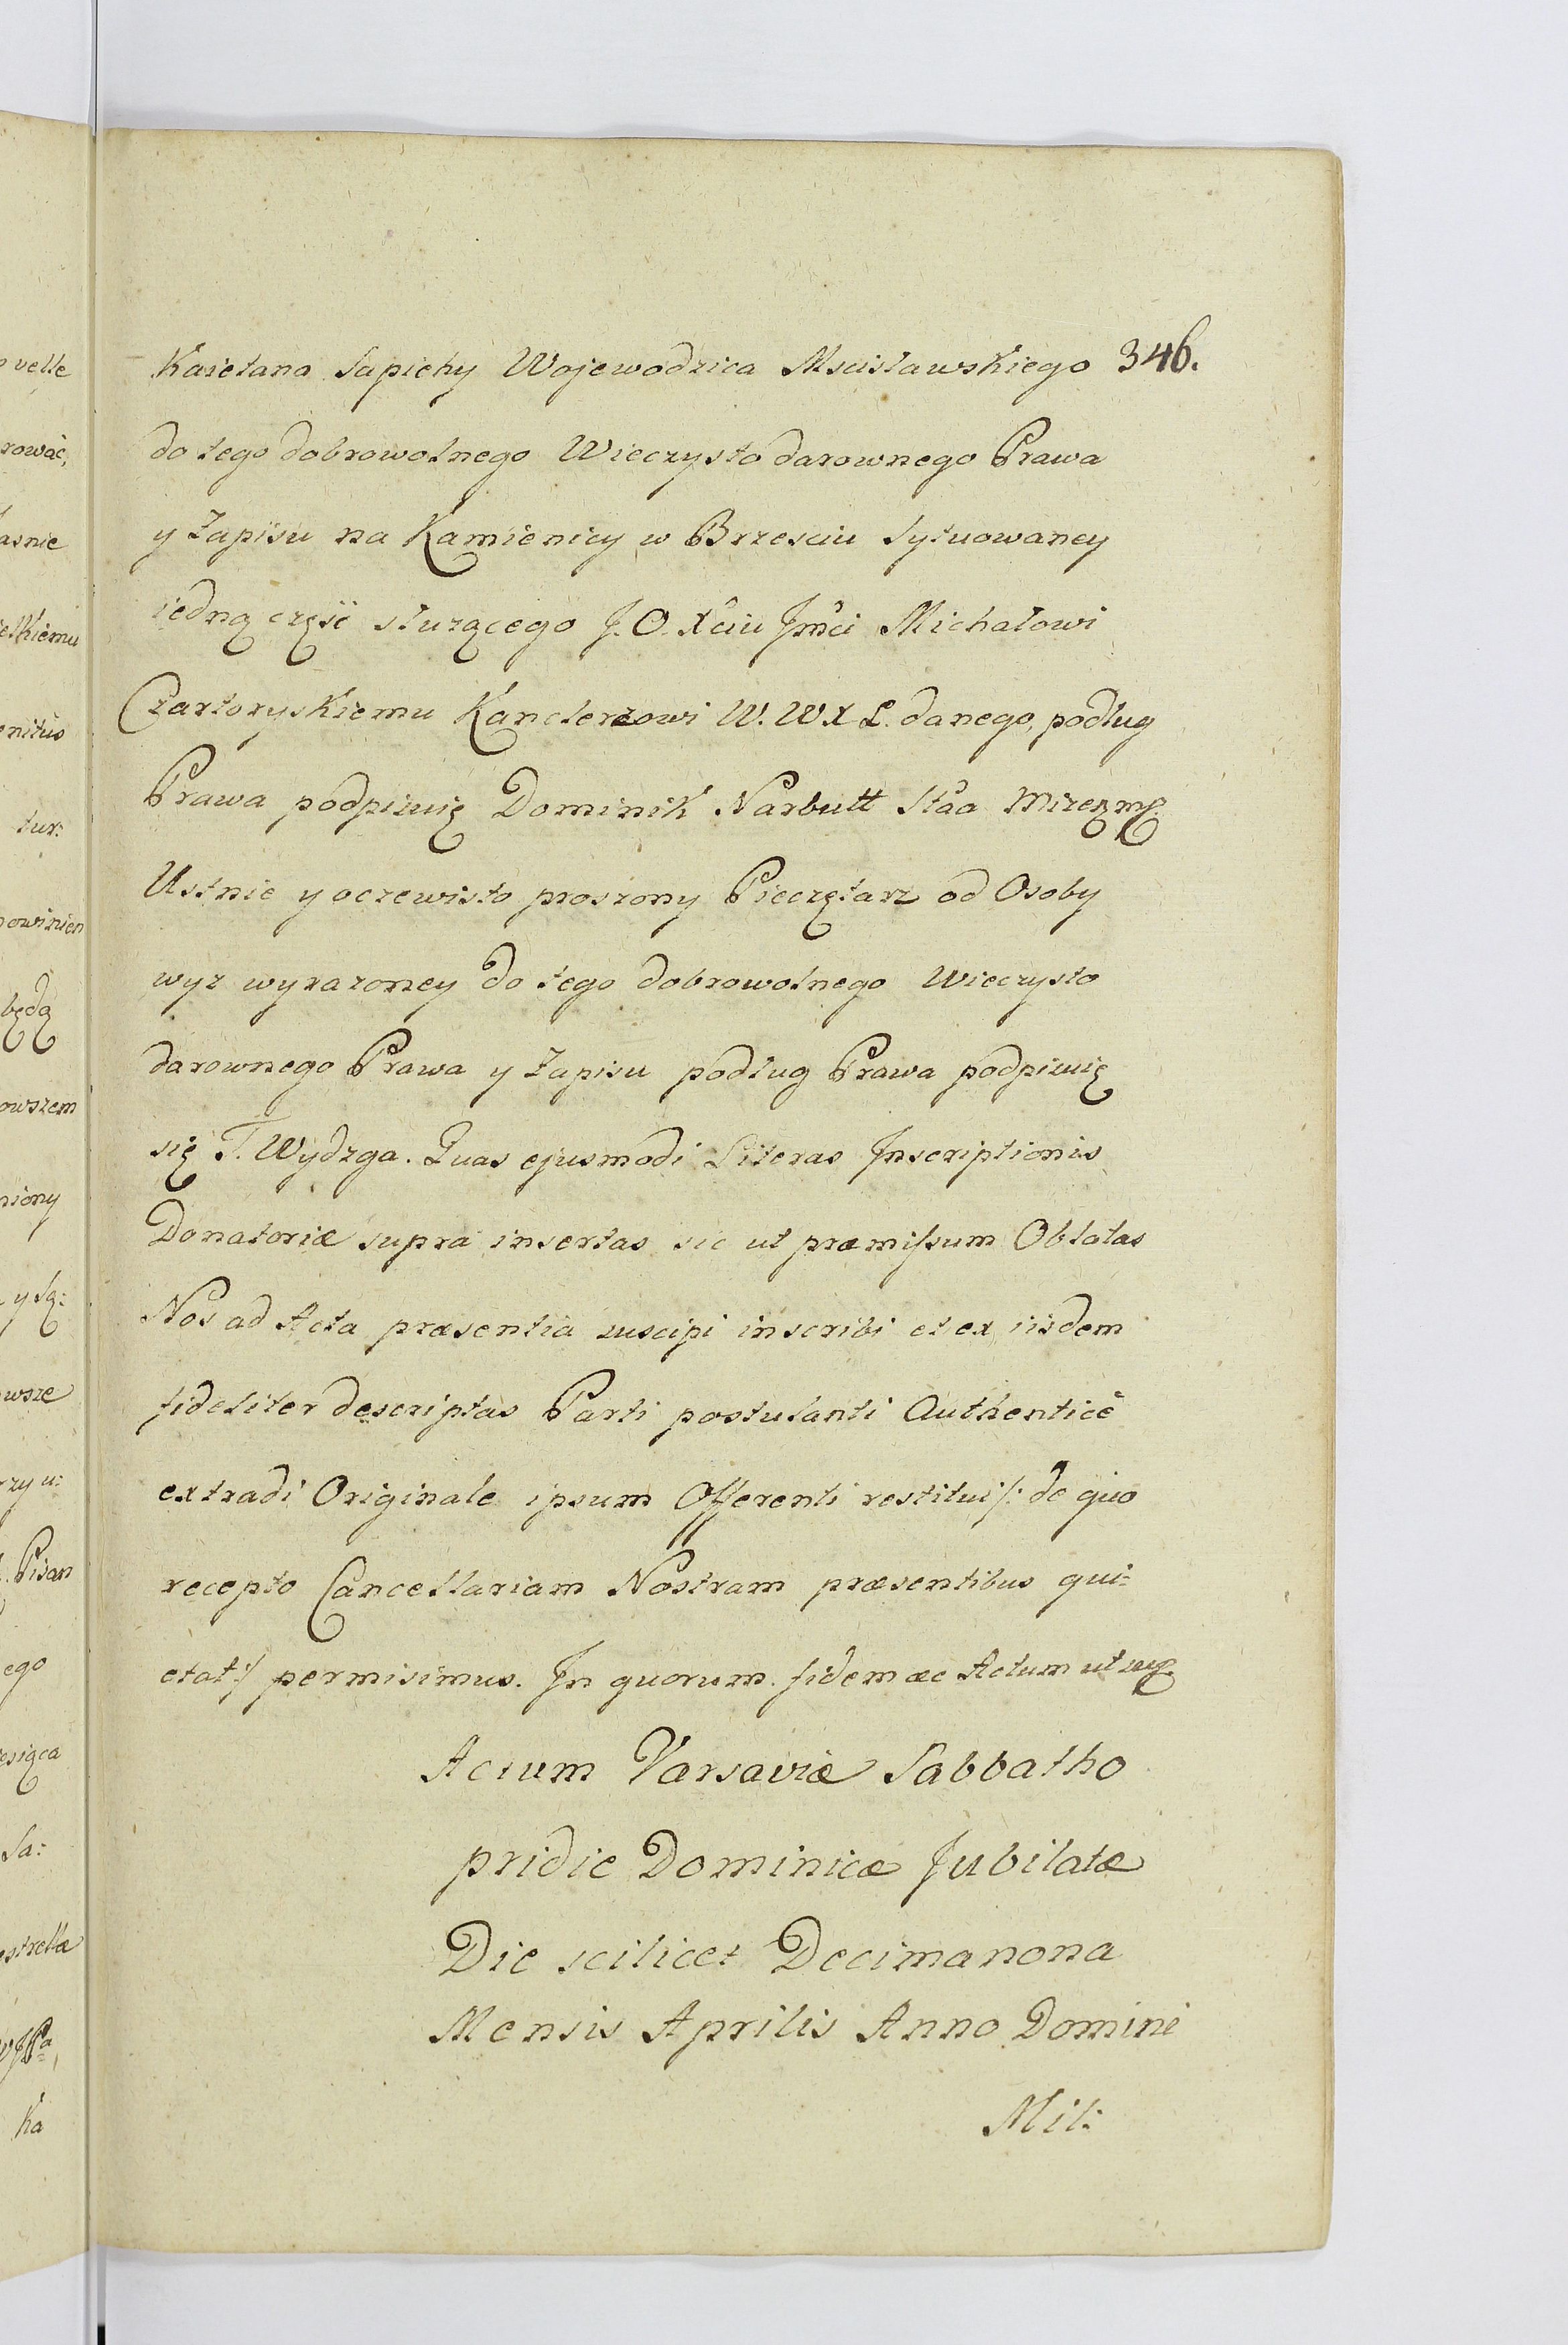 346.
Kaietana Sapiehy Wojewodzica Mscisławskiego
do tego dobrowolnego Wieczysto darownego Prawa
y Zapisu na Kamienicy w Brzesciu Sytuowaney
iedną częsć słuzącego J. O. Xciu Jmci Michałowi
Czartoryskiemu Kanclerzowi W. W X L. danego, podług
Prawa podpisuię Dominik Narbutt Staa
Ustnie y oczewisto proszony Pieczętarz od Osoby
wyz wyrazoney do tego dobrowolnego Wieczysto
darownego Prawa y Zapisu podług Prawa podpisuię
się T. Wydzga. Quas ejusmodi Literas Inscriptionis
Donatoriæ supra insertas sic ut præmissum Oblatas
Nos ad Acta præsentia suscipi inscribi et ex iisdem
fideliter descriptas Parti postulanti Authenticè
extradi Originale ipsum Offerenti restitui /: de quo
recepto Cancellariam Nostram præsentibus qui=
etat :/ permisimus. In quorum fidem æc Actum ut sup.
Actum Varsaviæ Sabbatho
pridie Dominicæ Jubilatæ
Die scilicet Decimanona
Mensis Aprilis Anno Domini
Mil:
velle
rować,
asnie
elkiemu
enitus
tur:
owinien
będą
owszem
niony
y Są:
wsze
rzy u:
Pisan
ego
esiąca
Sa:
estrellæ
ka